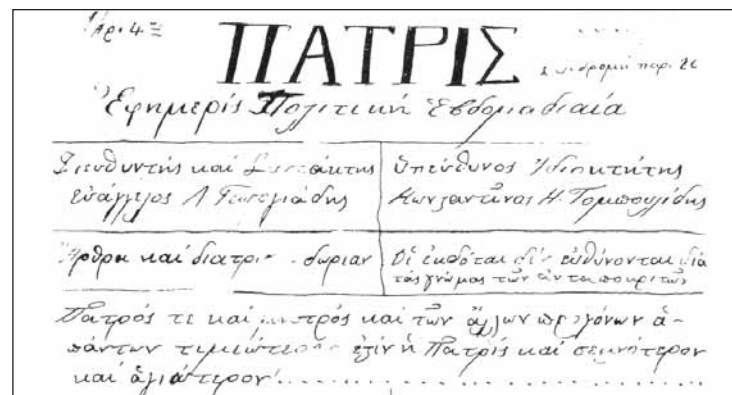 Ἀρ. 4
ΠΑΤΡΙΣ
Συνδρομή παρ. 20
Ἐφημερίς Πολιτική Ἑβδομαδιαία
Διευθυντής καί Συντάκτης
Εὐάγγελος Λ Γεωργιάδης
Ὑπεύθυνος Ἰδιοκτήτης
Κωνσταντῖνος Η. Τομπουλίδης
Ἄρθρα καί διατρι δωριαν
Οἱ ἐκδόται δέν εὐθύνονται διά
τάς γνώμας τῶν ἀνταποκριτῶν
Πατρός τε καί μητρός καί τῶν ἄλλων προγόνων ἁ-
πάντων τιμιώτερον ἐστίν ἡ Πατρίς καί σεμνότερον
καί ἁγιώτερον..........................